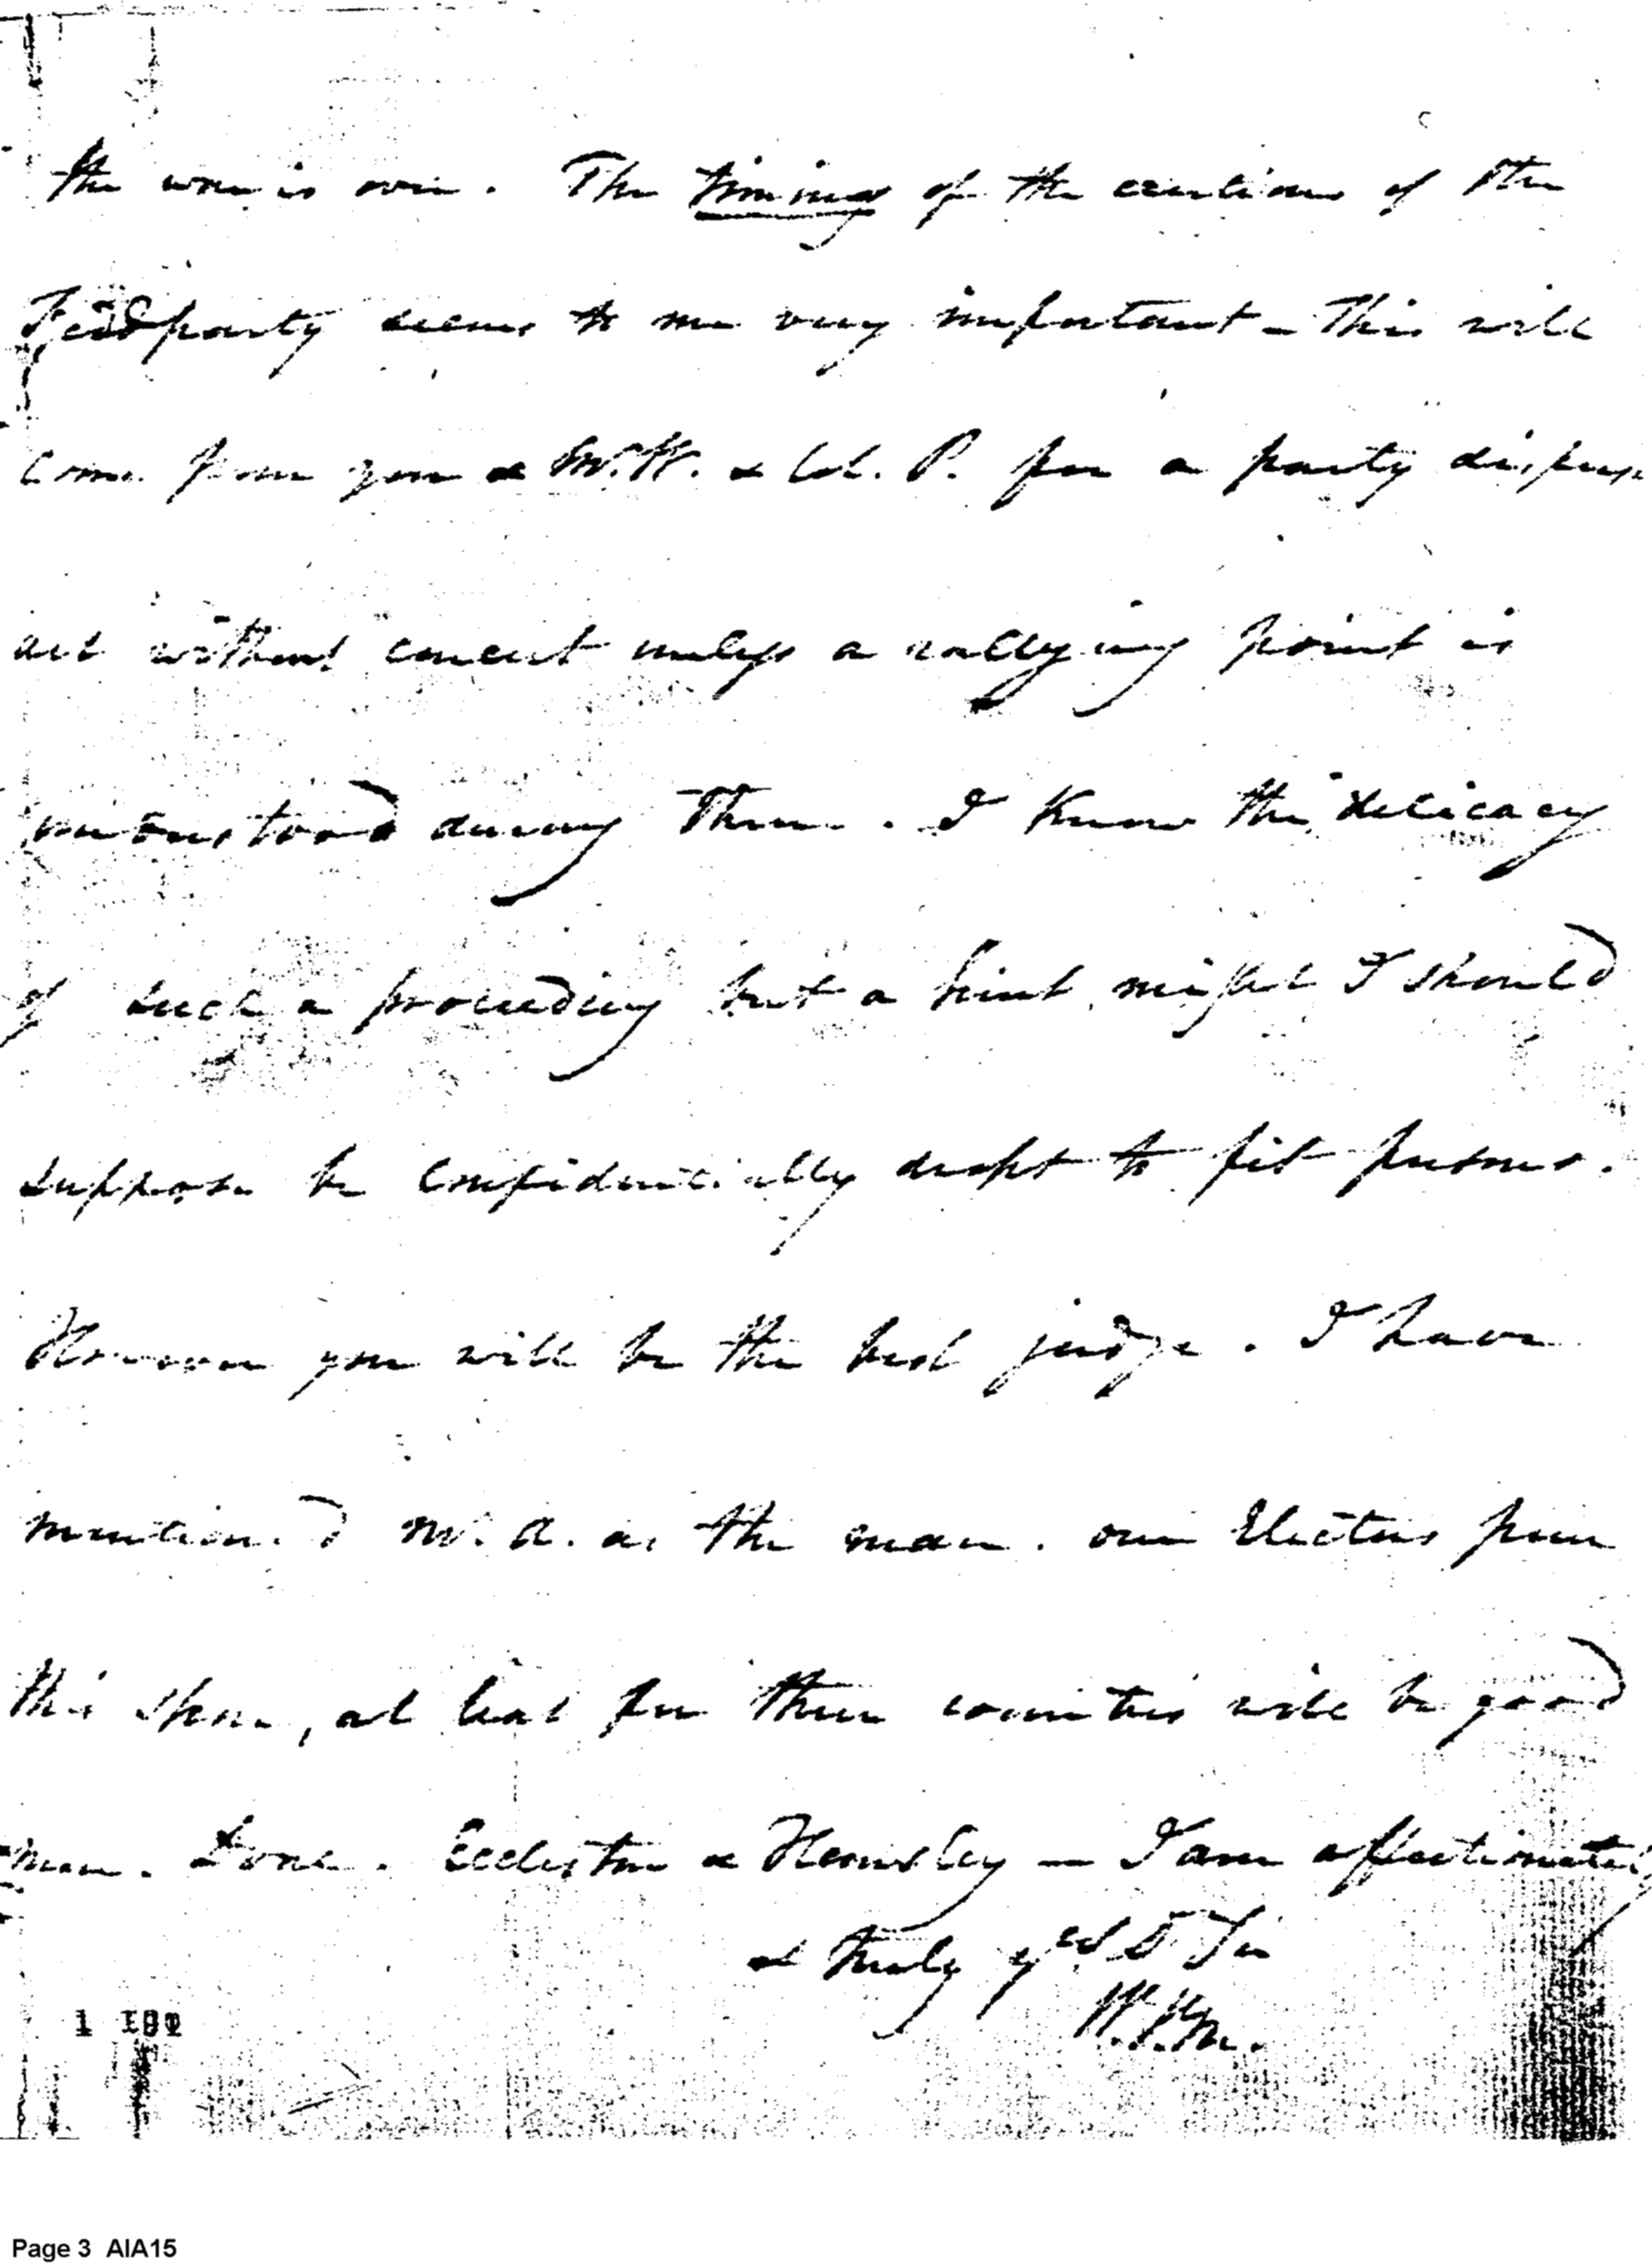 the wne is over. The timing of the exertions of the
Fedl party seems to me very important - This will
come from you & Mr. K. & Col. P. for a party disperse
and without concert unless a rallying point is
understood among them. I know the delicacy
of such a proceeding but a hint might I should
suppose be confidentially dropt to fit persons.
However you will be the best judge. I have
mentioned Mr. A. as the man. our Electors from
this shore, at least for three counties will be good
men. Done. Eccleston & Hemsley — I am affectionately
& truly yrs D Sir
W.V.M.
Page 3 AIA15